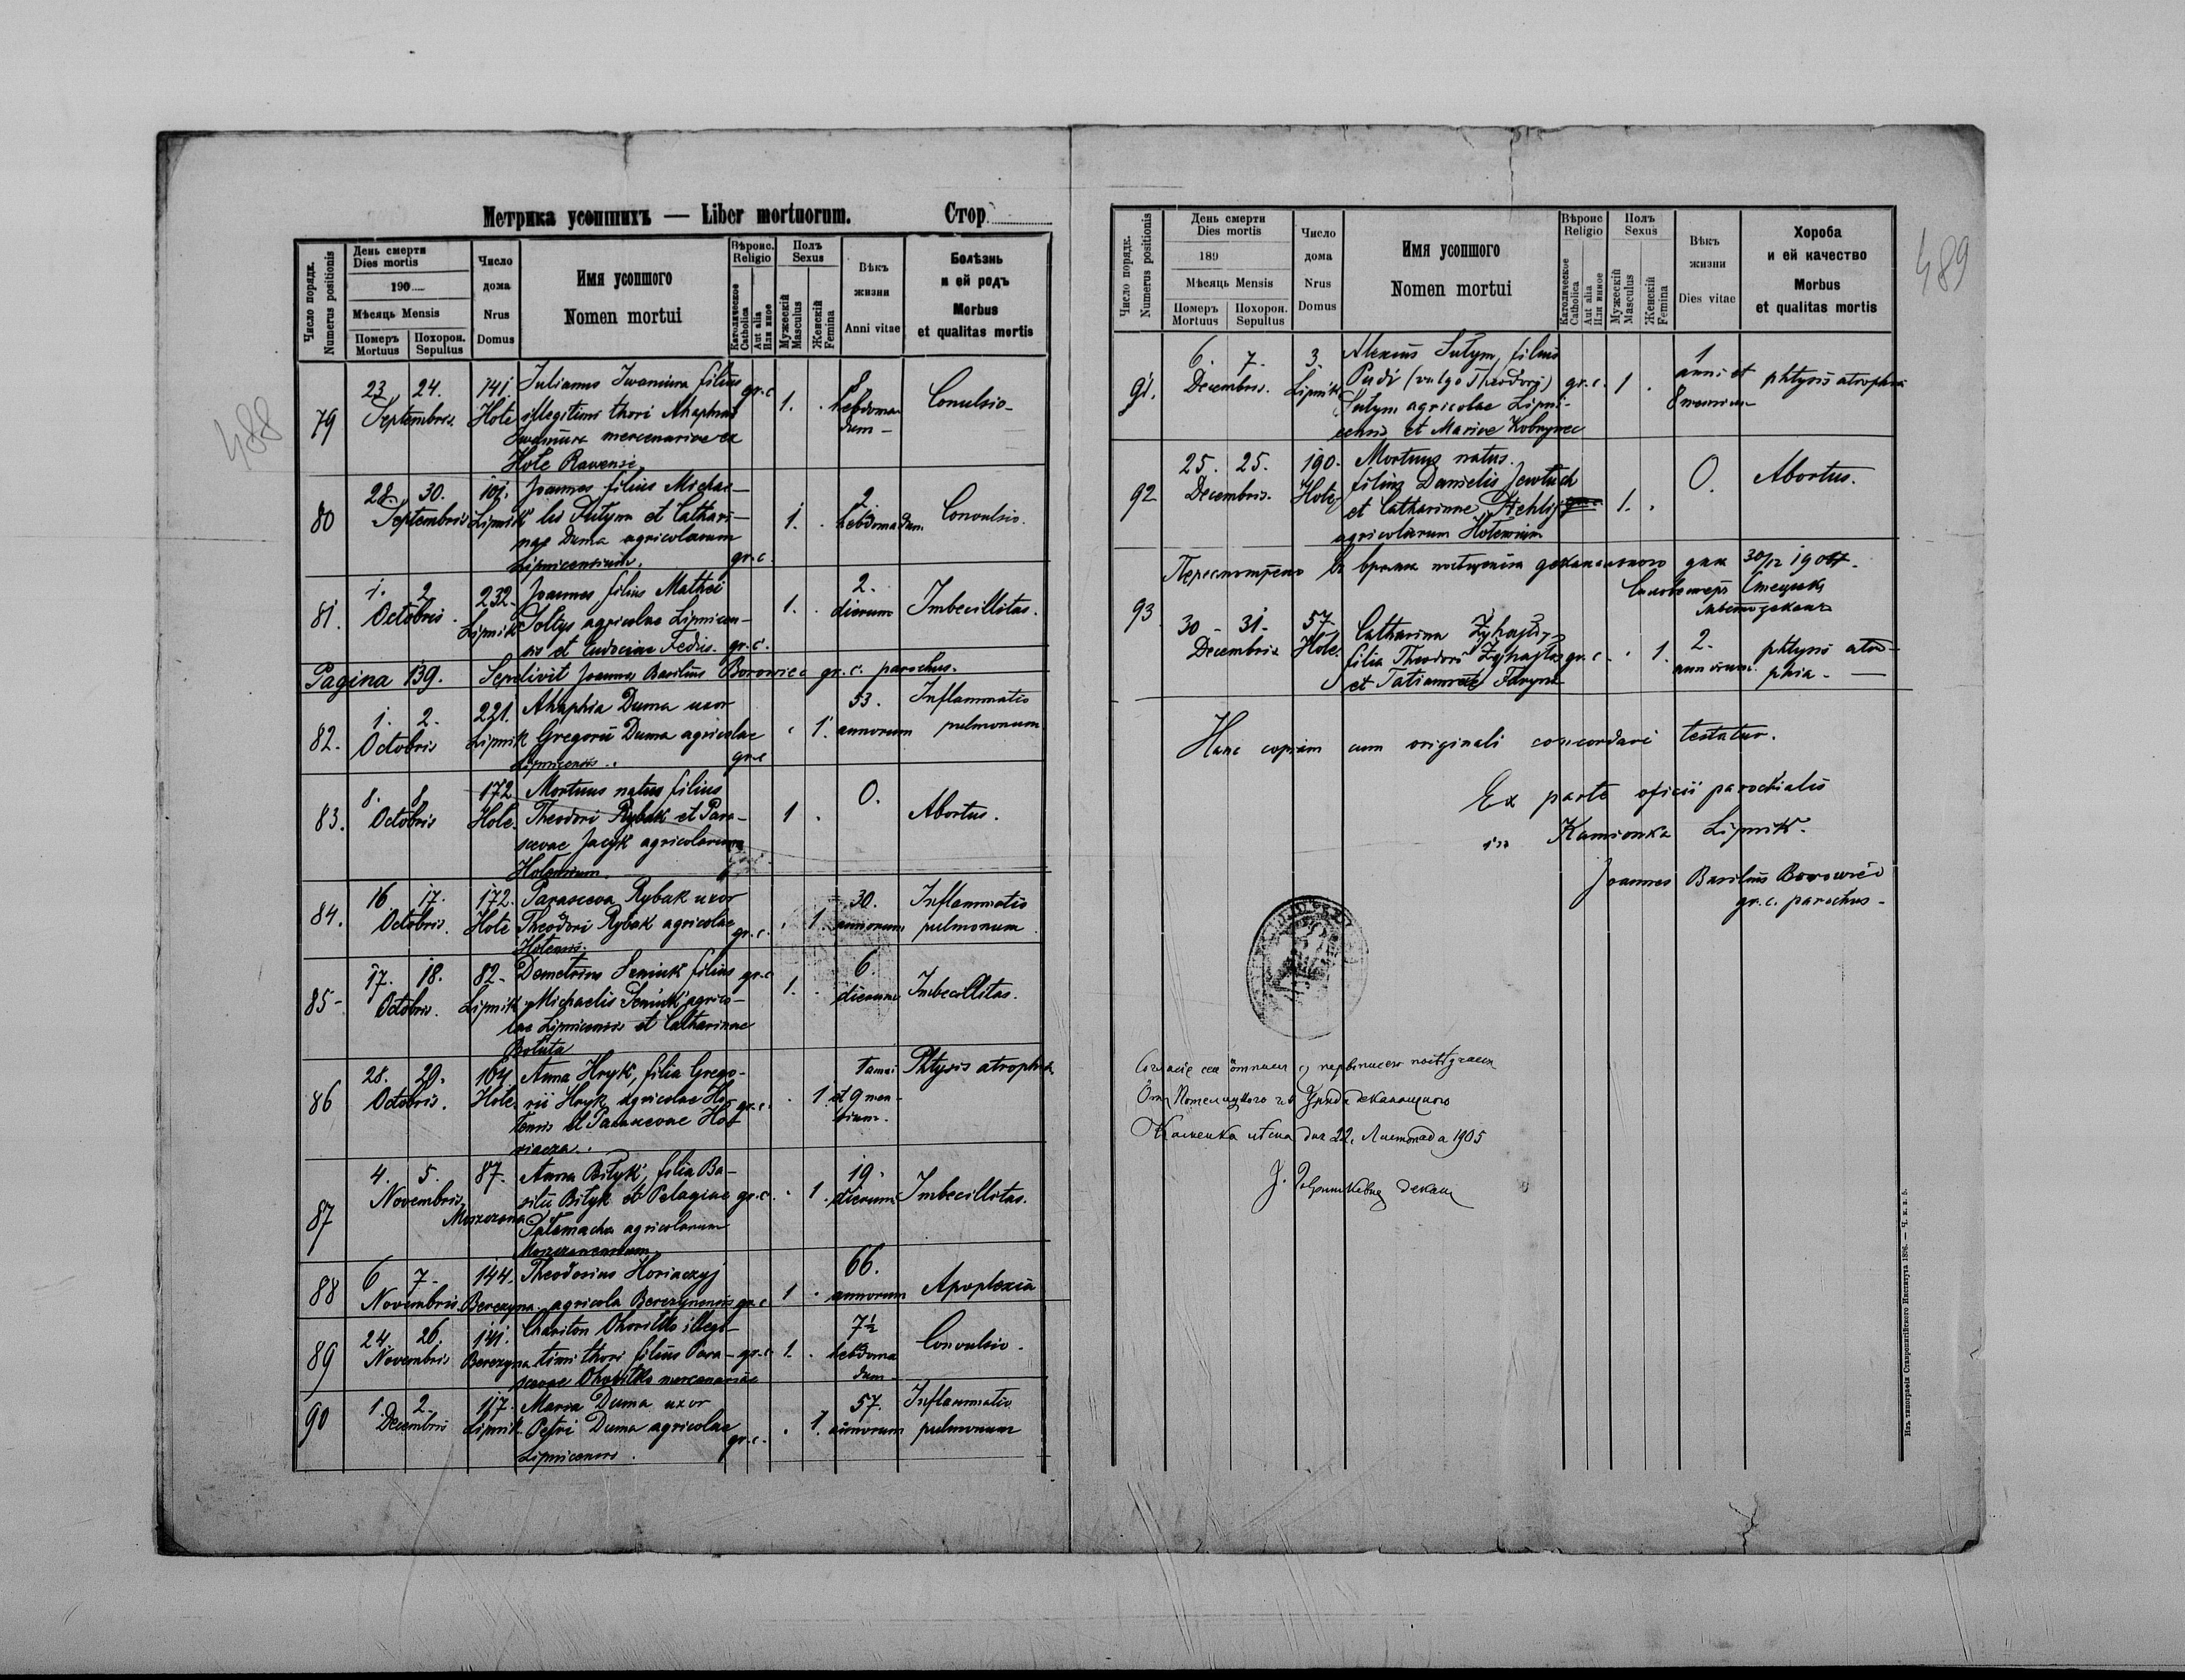 488
Метрика усопшихъ — Liber mortuorum. Стор.
Число порядк. Numerus positionis
День смерти
Dies mortis
190
Мѣсяць Mensis
Померъ Mortuus
Похорон. Sepultus
Число дома Nrus Domus
Имя усопшого
Nomen mortui
Вѣроис. Religio
Католическое Catholica
Aut alia Или иное
Полъ Sexus
Мужескій Masculus
Женскій Femina
Вѣкъ жизни
Anni vitae
Болѣзнь и ей родъ
Morbus et qualitas mortis
79 23 24. Septembris. 141. Hole
Julianus Iwaniura filius
illegitimi thori Ahaphiae
Iwaniura mercenariae ex
Hole Rawensi.
gr. c. 1. . 8 hebdomadum - Convulsio -
80 28. 30. Septembris 101. Lipnik
Joannes filius Michae-
lis Futyma et Cathari-
nae Duma agricolarum
Lipnicensium.
gr. c. 1. . 2 hebdomadum. Convulsio.
81. 1. 2. Octobris 232. Lipnik
Joannes filius Mathei
Soltys agricolae Lipnicen-
sis et Eudociae Fedus.
gr. c. 1. . 2. dierum Imbecillitas.
Pagina 139. Sepelivit Joannes Basilius Borowiec gr. c. parochus.
82. 1. 2. Octobris 221. Lipnik
Ahaphia Duma uxor
Gregorii Duma agricolae
Lipnicensis.
gr. c . 1. 53. annorum Inflammatio pulmonum
83. 8. 8. Octobris 172 Hole.
Mortuus natus filius
Theodori Rybak et Para-
scevae Jacyk agricolarum
Holensium.
1 . 0. Abortus.
84. 16. 17. Octobris. 172. Hole
Parasceva Rybak uxor
Theodori Rybak agricolae
Holensis.
gr. c. . 1. 30. annorum Inflammatio pulmonum
85- 17. 18. Octobris. 82. Lipnik
Demetrius Seniuk filius
Michaelis Seniuk agrico-
lae Lipnicensis et Catharinae
gr. c 1. . 6. dierum Imbecillitas.
86 28. 29. Octobris. 164 Hole
Anna Hryk, filia Grego-
rii Hryk agricolae Ho-
lensis et Parascevae Ho-
gr. c. . 1. 1 anni et 9 mensium. Phtysis atrophia
87 4. 5. Novembris 87. Moszczana
Anna Biłyk, filia Ba-
silii Biłyk et Pelagiae
Pałamachar agricolarum
gr. c. . 1. 19. dierum Imbecillitas.
88 6 7. Novembris 144. Berezyna
Theodosius Horiaczyj
agricola Berezynensis
gr. c 1 . 66. annorum Apoplexia
89 24. 26. Novembris 141. Berezyna
Chariton Ohoritko illegi-
timi thori filius Para-
scevae Ohoritko mercenariae
gr. c 1. . 7½ hebdomadum Convulsio.
90 1. 2. Decembris 117. Lipnik
Maria Duma uxor
Petri Duma agricolae
Lipnicensis.
gr. c. . 1. 57. annorum Inflammatio pulmonum
489
Число порядк. Numerus positionis
День смерти
Dies mortis
189
Мѣсяць Mensis
Померъ Mortuus
Похорон. Sepultus
Число дома Nrus Domus
Имя усопшого
Nomen mortui
Вѣроис Religio
Католическое Catholica
Aut alia Или иное
Полъ Sexus
Мужескій Masculus
Женскій Femina
Вѣкъ жизни
Dies vitae
Хороба и ей качество
Morbus et qualitas mortis
91. 6. 7. Decembris. 3. Lipnik
Alexius Sutym, filius
(vulgo Theodori)
Sutym agricolae Lipni-
censis et Mariae Kobrynec
gr. c. 1 . 1 anni et 8 mensium phtysis atrophia
92 25. 25. Decembris. 190. Hole
Mortuus natus.
filius Danielis Jewtuch
et Catharinae
agricolarum Holensium
1. . 0. Abortus.
30/12 1904.
93 30 - 31- Decembris 57. Hole.
Catharina
filia Theodori
et Tatiannae
gr. c . 1. 2. annorum. phtysis atrophia.
Hanc copiam cum originali concordari testatur.
Ex parte oficii parochialis
in Kamionka Lipnik.
Joannes Basilius Borowiec
gr. c. parochus -
дня 22. Листопада 1905
деканъ
Изъ типографіи Ставропигійского Института 1896. — Ч. к. з. 5.